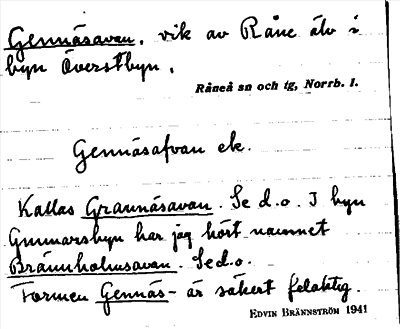 Gennäsavan, vik av Råne älv i
byn Överstbyn.
Råneå sn och tg, Norrb. l.
Gennäsafvan ek.
Kallas Grannäsavan. Se d.o. I byn
Gunnarsbyn har jag hört namnet
Brännholmsavan. Se d.o.
Formen Gennäs- är säkert felaktig.
EDVIN BRÄNNSTRÖM 1941